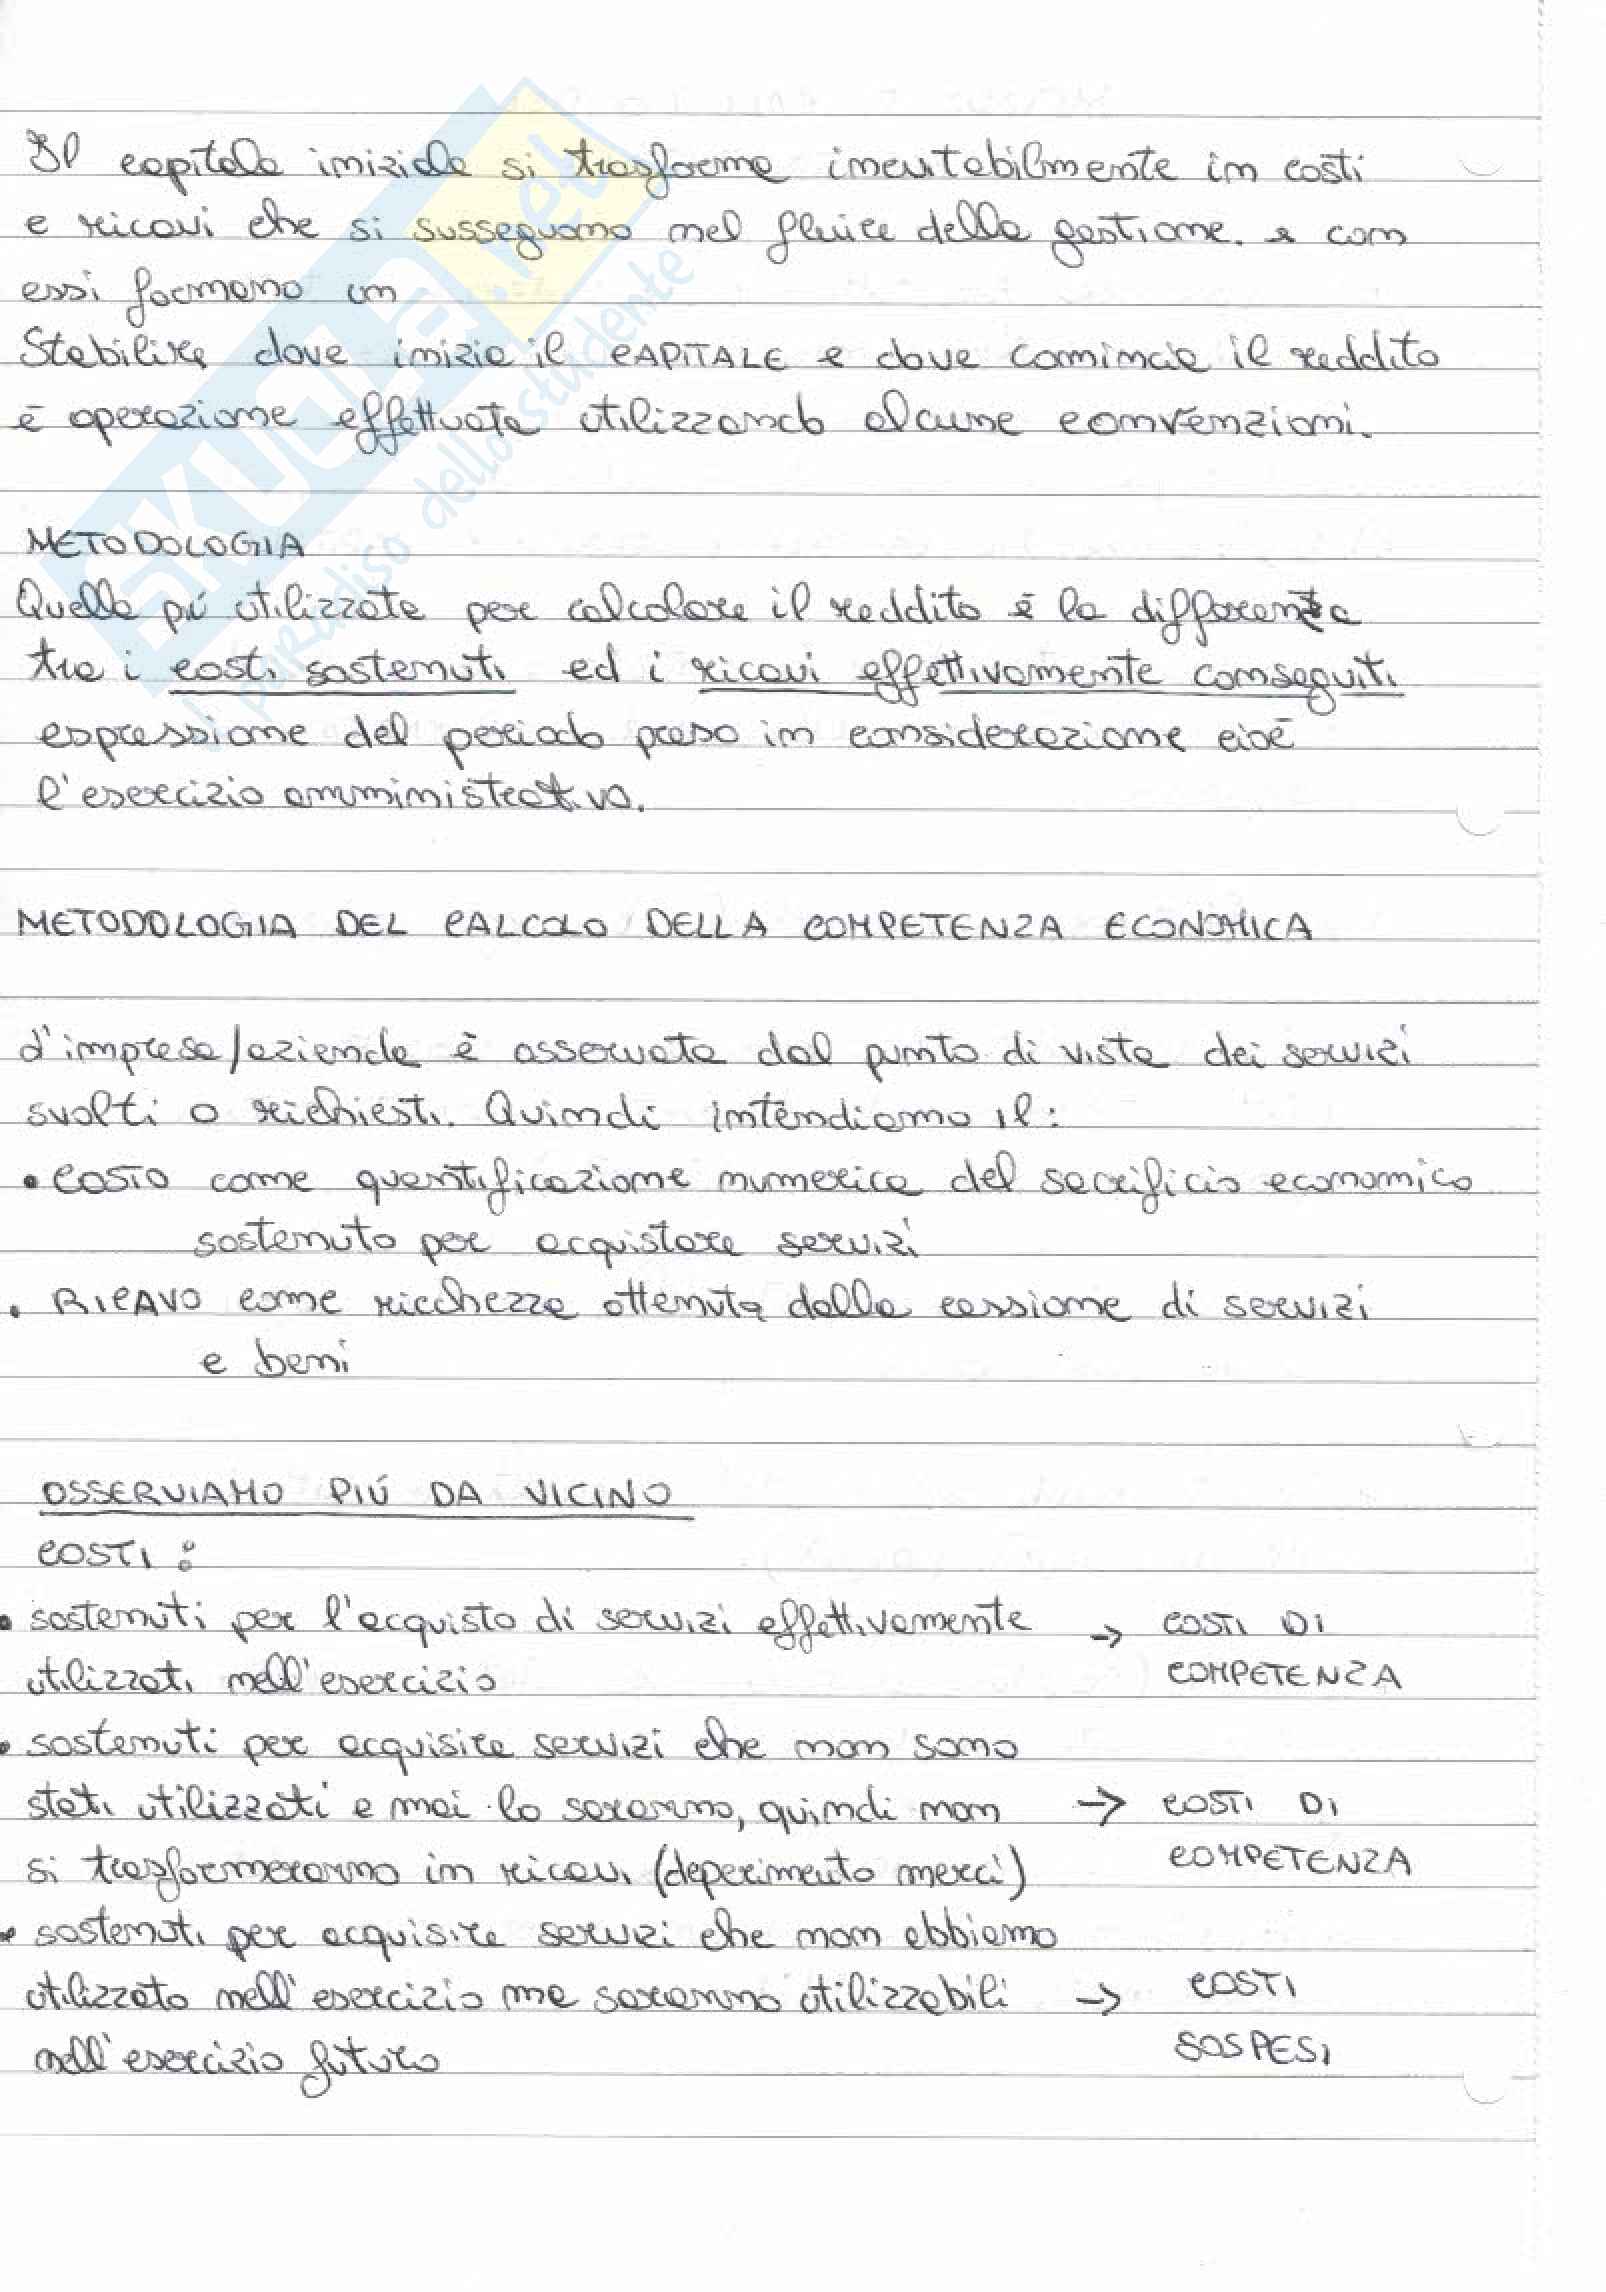 Il capitale iniziale si trasforma inevitabilmente in costi
e ricavi che si susseguono nel fluire della gestione. e con
essi formano un
Stabilire dove inizia il CAPITALE e dove comincia il reddito
è operazione effettuata utilizzando alcune convenzioni.
METODOLOGIA
Quella più utilizzata per calcolare il reddito è la differenza
tra i costi sostenuti ed i ricavi effettivamente conseguiti
espressione del periodo preso in considerazione cioè
l'esercizio amministrativo.
METODOLOGIA DEL CALCOLO DELLA COMPETENZA ECONOMICA
L'impresa/azienda è osservata dal punto di vista dei servizi
svolti o richiesti. Quindi intendiamo il:
• COSTO come quantificazione numerica del sacrificio economico
sostenuto per acquistare servizi
• RICAVO come ricchezza ottenuta dalla cessione di servizi
e beni
OSSERVIAMO PIÚ DA VICINO
COSTI:
• sostenuti per l'acquisto di servizi effettivamente → COSTI DI
utilizzati nell'esercizio COMPETENZA
• sostenuti per acquisire servizi che non sono
stati utilizzati e mai lo saranno, quindi non → COSTI DI
si trasformeranno in ricavi (deperimento merci) COMPETENZA
• sostenuti per acquisire servizi che non abbiamo
utilizzato nell'esercizio ma saranno utilizzabili → COSTI
nell'esercizio futuro SOSPESI
SKUOLA.net
il paradiso dello studente